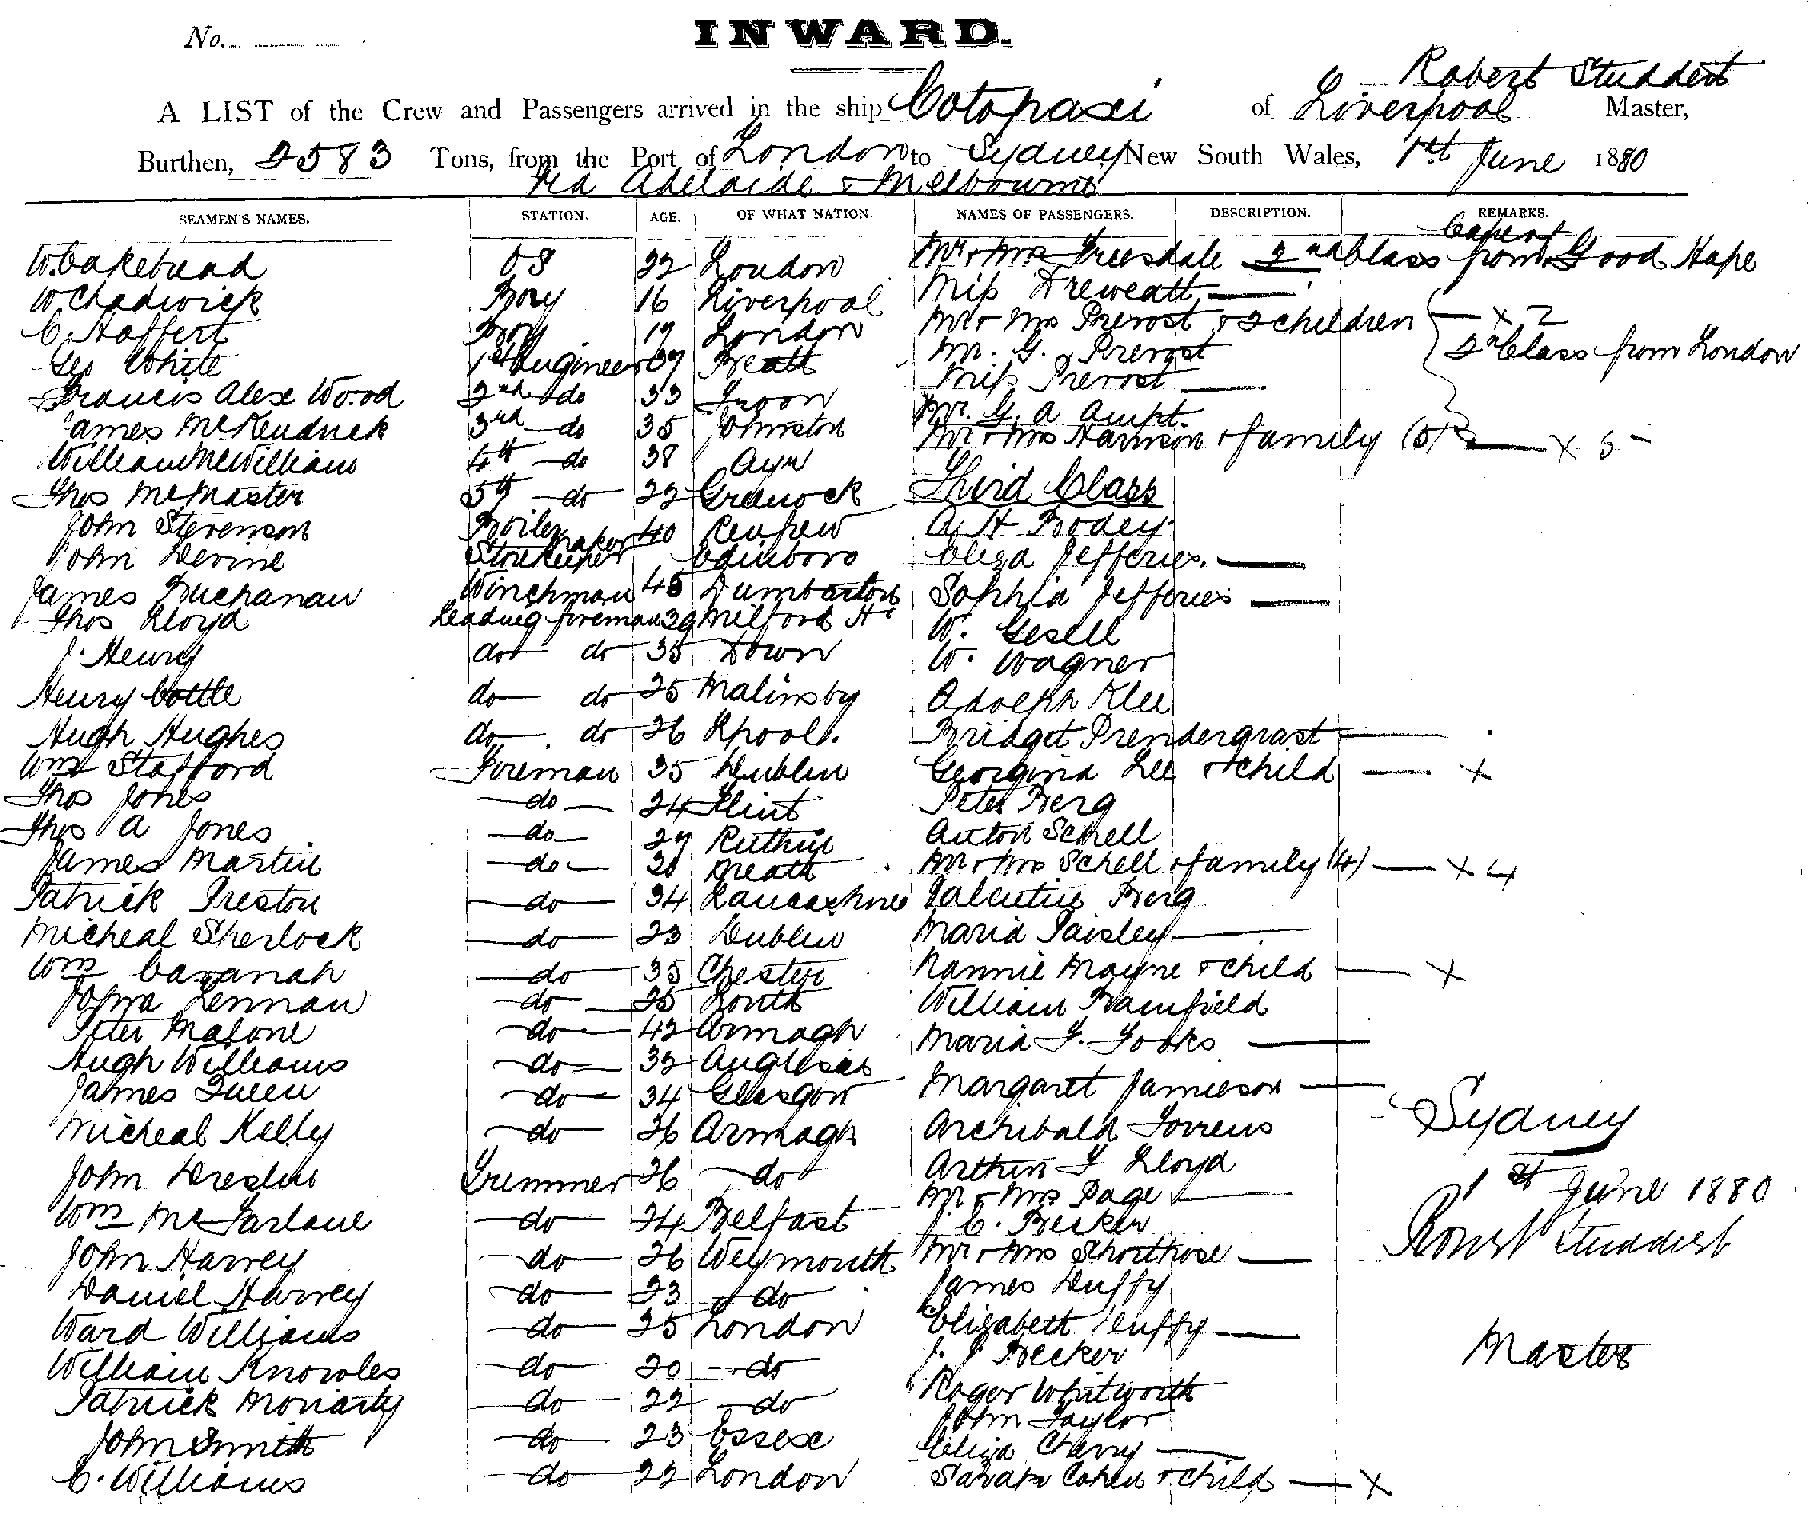 No.
INWARD.
C Robert Studdert
A LIST of the Crew and Passengers arrived in the ship Cotopaxi of Liverpool Master,
Burthen, 2583 Tons, from the Port of London to Sydney New South Wales, 1st June 1880
via Adelaide & Melbourne
SEAMEN'S NAMES. STATION. AGE. OF WHAT NATION. NAMES OF PASSENGERS. DESCRIPTION. REMARKS.
W. Cakebread OS 22 London Mr & Mrs Treesdale 2nd Class from Cape of Good Hope
W Chadwick Boy 16 Liverpool Miss Dreweatt
C Haffert Boy 17 London Mr & Mrs Prevost & 2 children x 2
Geo White 1st Engineer 37 Meath Mr. G. Prevost 2nd Class from London
Francis Alex Wood 2nd do 33 Troon Miss Prevost
James McKendrick 3rd do 35 Johnston Mr. G. A
William McWilliam 4th do 38 Ayr Mr & Mrs Harrison & family (5) x 5
Thos McMaster 5th do 22 Greenock Third Class
John Stevenson Boiler maker 40 Renfrew A. H. Bodey
John Devine Storekeeper Edinboro Eliza Jefferies
James Buchanan Winchman 45 Dumbarton Sophia Jefferies
Thos Lloyd Leading fireman 29 Milford Hn W. Gesell
J. Henry do do 35 Down W. Wagner
Henry Cottle do do 25 Malmsby Adolph Klee
Hugh Hughes do do 26 Lpool. Bridget Prendergrast
Wm Stafford Fireman 35 Dublin Georgina Lee & child x
Thos Jones do 24 Flint Peter Berg
Thos A Jones do 27 Ruthin Anton Schell
James Martin do 20 Meath Mr & Mrs Schell & family (4) x 4
Patrick Preston do 34 Lancashire Valentin Berg
Micheal Sherlock do 23 Dublin Maria Paisley
Wm Cavanah do 35 Chester Nannie Mayne & child x
John Lennan do 25 Louth William Bamfield
Peter Malone do 42 Armagh Maria F. Fooks
Hugh Williams do 32 Anglesea
James Queen do 34 Glasgow Margaret Jamieson
Micheal Kelly do 26 Armagh Archibald Torrens
John Breslin Trimmer 26 do Arthur F Lloyd
Mr & Mrs Page
Wm McFarlane do 24 Belfast J. C. Becker
John Harvey do 26 Weymouth Mr & Mrs Shorthose
Daniel Harvey do 23 do James Duffy
Ward Williams do 25 London Elizabeth Duffy
William Knowles do 20 do J. J Becker
Patrick Moriarty do 22 do Roger Whitworth
John Taylor
John Smith do 23 Essex Eliza Cherry
C. Williams do 22 London Sarah Cohen & child x
Sydney
1st June 1880
Robert Studdert
Master